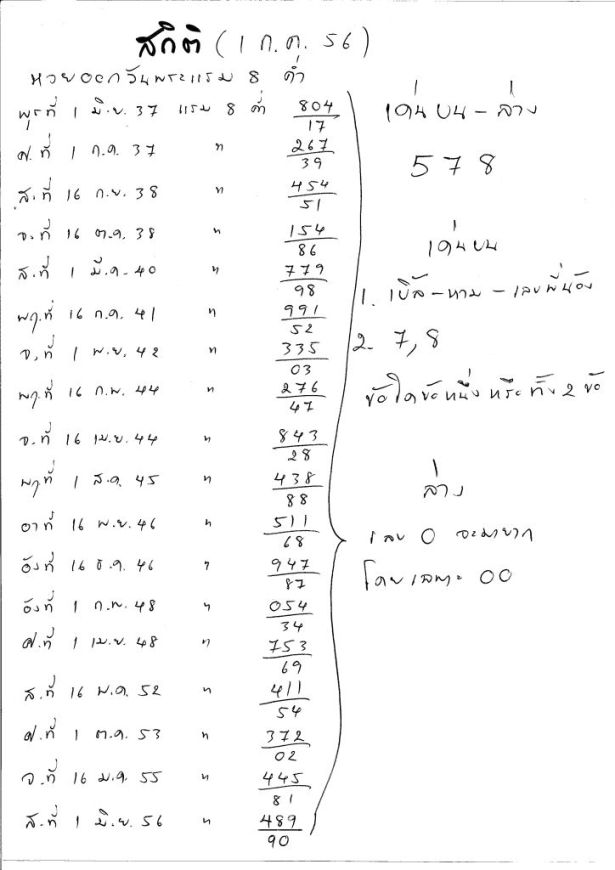 สถิติ (1 ก.ค. 56)
หวยออกวันพระแรม 8 ค่ำ
พุธที่ 1 มิ.ย. 37 แรม 8 ค่ำ 804/17
ศ.ที่ 1 ก.ค. 37 " 267/39
ส.ที่ 16 ก.ย. 38 " 454/51
จ.ที่ 16 ต.ค. 38 " 154/86
ส.ที่ 1 มี.ค. 40 " 779/98
พฤ.ที่ 16 ก.ค. 41 " 991/52
จ.ที่ 1 พ.ย. 42 " 335/03
พฤ.ที่ 16 ก.พ. 44 " 276/47
จ.ที่ 16 เม.ย. 44 " 843/28
พฤที่ 1 ส.ค. 45 " 438/88
อาที่ 16 พ.ย. 46 " 511/68
อังที่ 16 ธ.ค. 46 " 947/87
อังที่ 1 ก.พ. 48 " 054/34
ศ.ที่ 1 เม.ย. 48 " 753/69
ส.ที่ 16 พ.ค. 52 " 411/54
ศ.ที่ 1 ต.ค. 53 " 372/02
จ.ที่ 16 ม.ค. 55 " 445/81
ส.ที่ 1 มิ.ย. 56 " 489/90
เด่นบน - ล่าง
5 7 8
เด่นบน
1. เบิ้ล - หาม - เลขพี่น้อง
2. 7, 8
ข้อใดข้อหนึ่ง หรือ ทั้ง 2 ข้อ
ล่าง
เลข 0 จะมายาก
โดยเฉพาะ 00